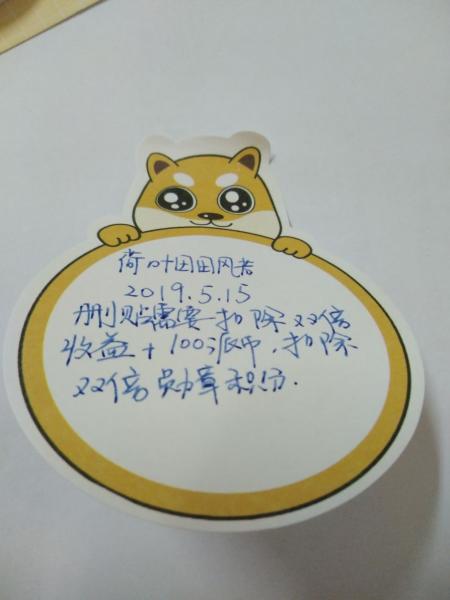 荷叶田田风若
2019.5.15
删贴需要扣除双倍
收益+100派币,扣除
双倍勋章积分.